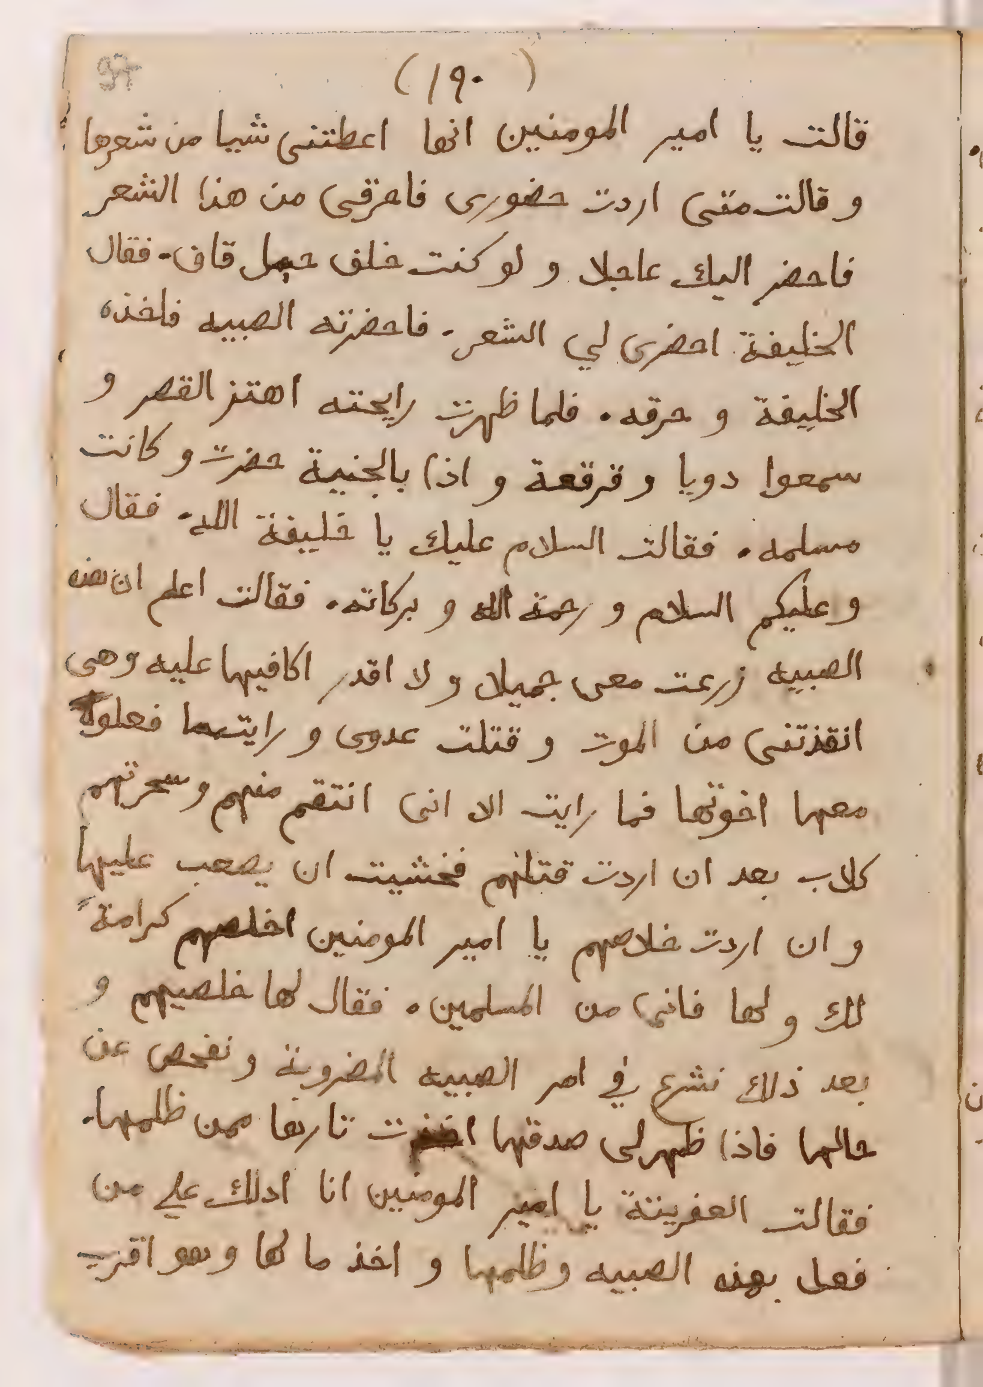 97
(١٩٠)
قالت يا امير المومنين انها اعطتنى شيا من شعرها
و قالت متى اردت حضورى فاحرقى من هذا الشعر
فاحضر اليك عاجلا و لو كنت خلف جبل قاف. فقال
الخليفة احضرى لي الشعر. فاحضرته الصبيه فاخذه
الخليفة و حرقه. فلما ظهرت رايحته اهتز القصر و
سمعوا دويا و قرقعة و اذا بالجنية حضرت و كانت
مسلمه. فقالت السلام عليك يا خليفة الله. فقال
و عليكم السلام و رحمة الله و بركاته. فقالت اعلم ان هذه
الصبيه زرعت معى جميلا و لا اقدر اكافيها عليه وهى
انقذتنى من الموت و قتلت عدوى و رايت ما فعلوا
معها اخوتها فما رايت الا انى انتقم منهم و سحرتهم
كلاب بعد ان اردت قتلهم فخشيت ان يصعب عليها
و ان اردت خلاصهم يا امير المومنين اخلصهم كرامة
لك و لها فانى من المسلمين. فقال لها خلصيهم و
بعد ذلك نشرع في امر الصبيه المضروبة و نفحص عن
حالها فاذا ظهر لى صدقها اخذت تارها ممن ظلمها.
فقالت العفريتة يا امير المومنين انا ادلك على من
فعل بهذه الصبيه وظلمها و اخذ ما لها و هو اقرب